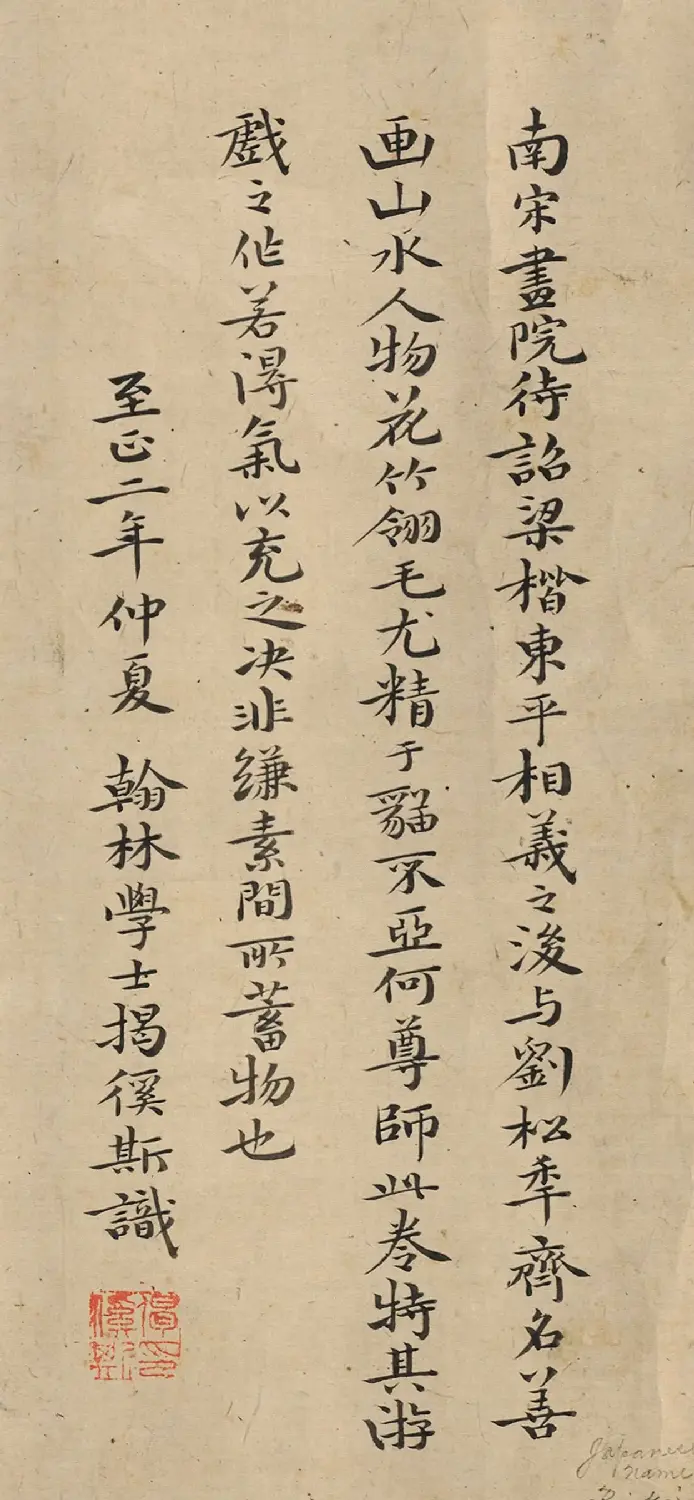 南宋畫院待詔梁楷東平相義之後与劉松年齊名善
画山水人物花竹翎毛尤精于貓不亞何尊師此卷特其游
戲之作若得氣以充之决非縑素間所蓄物也
至正二年仲夏 翰林學士揭徯斯識
Japanese
name